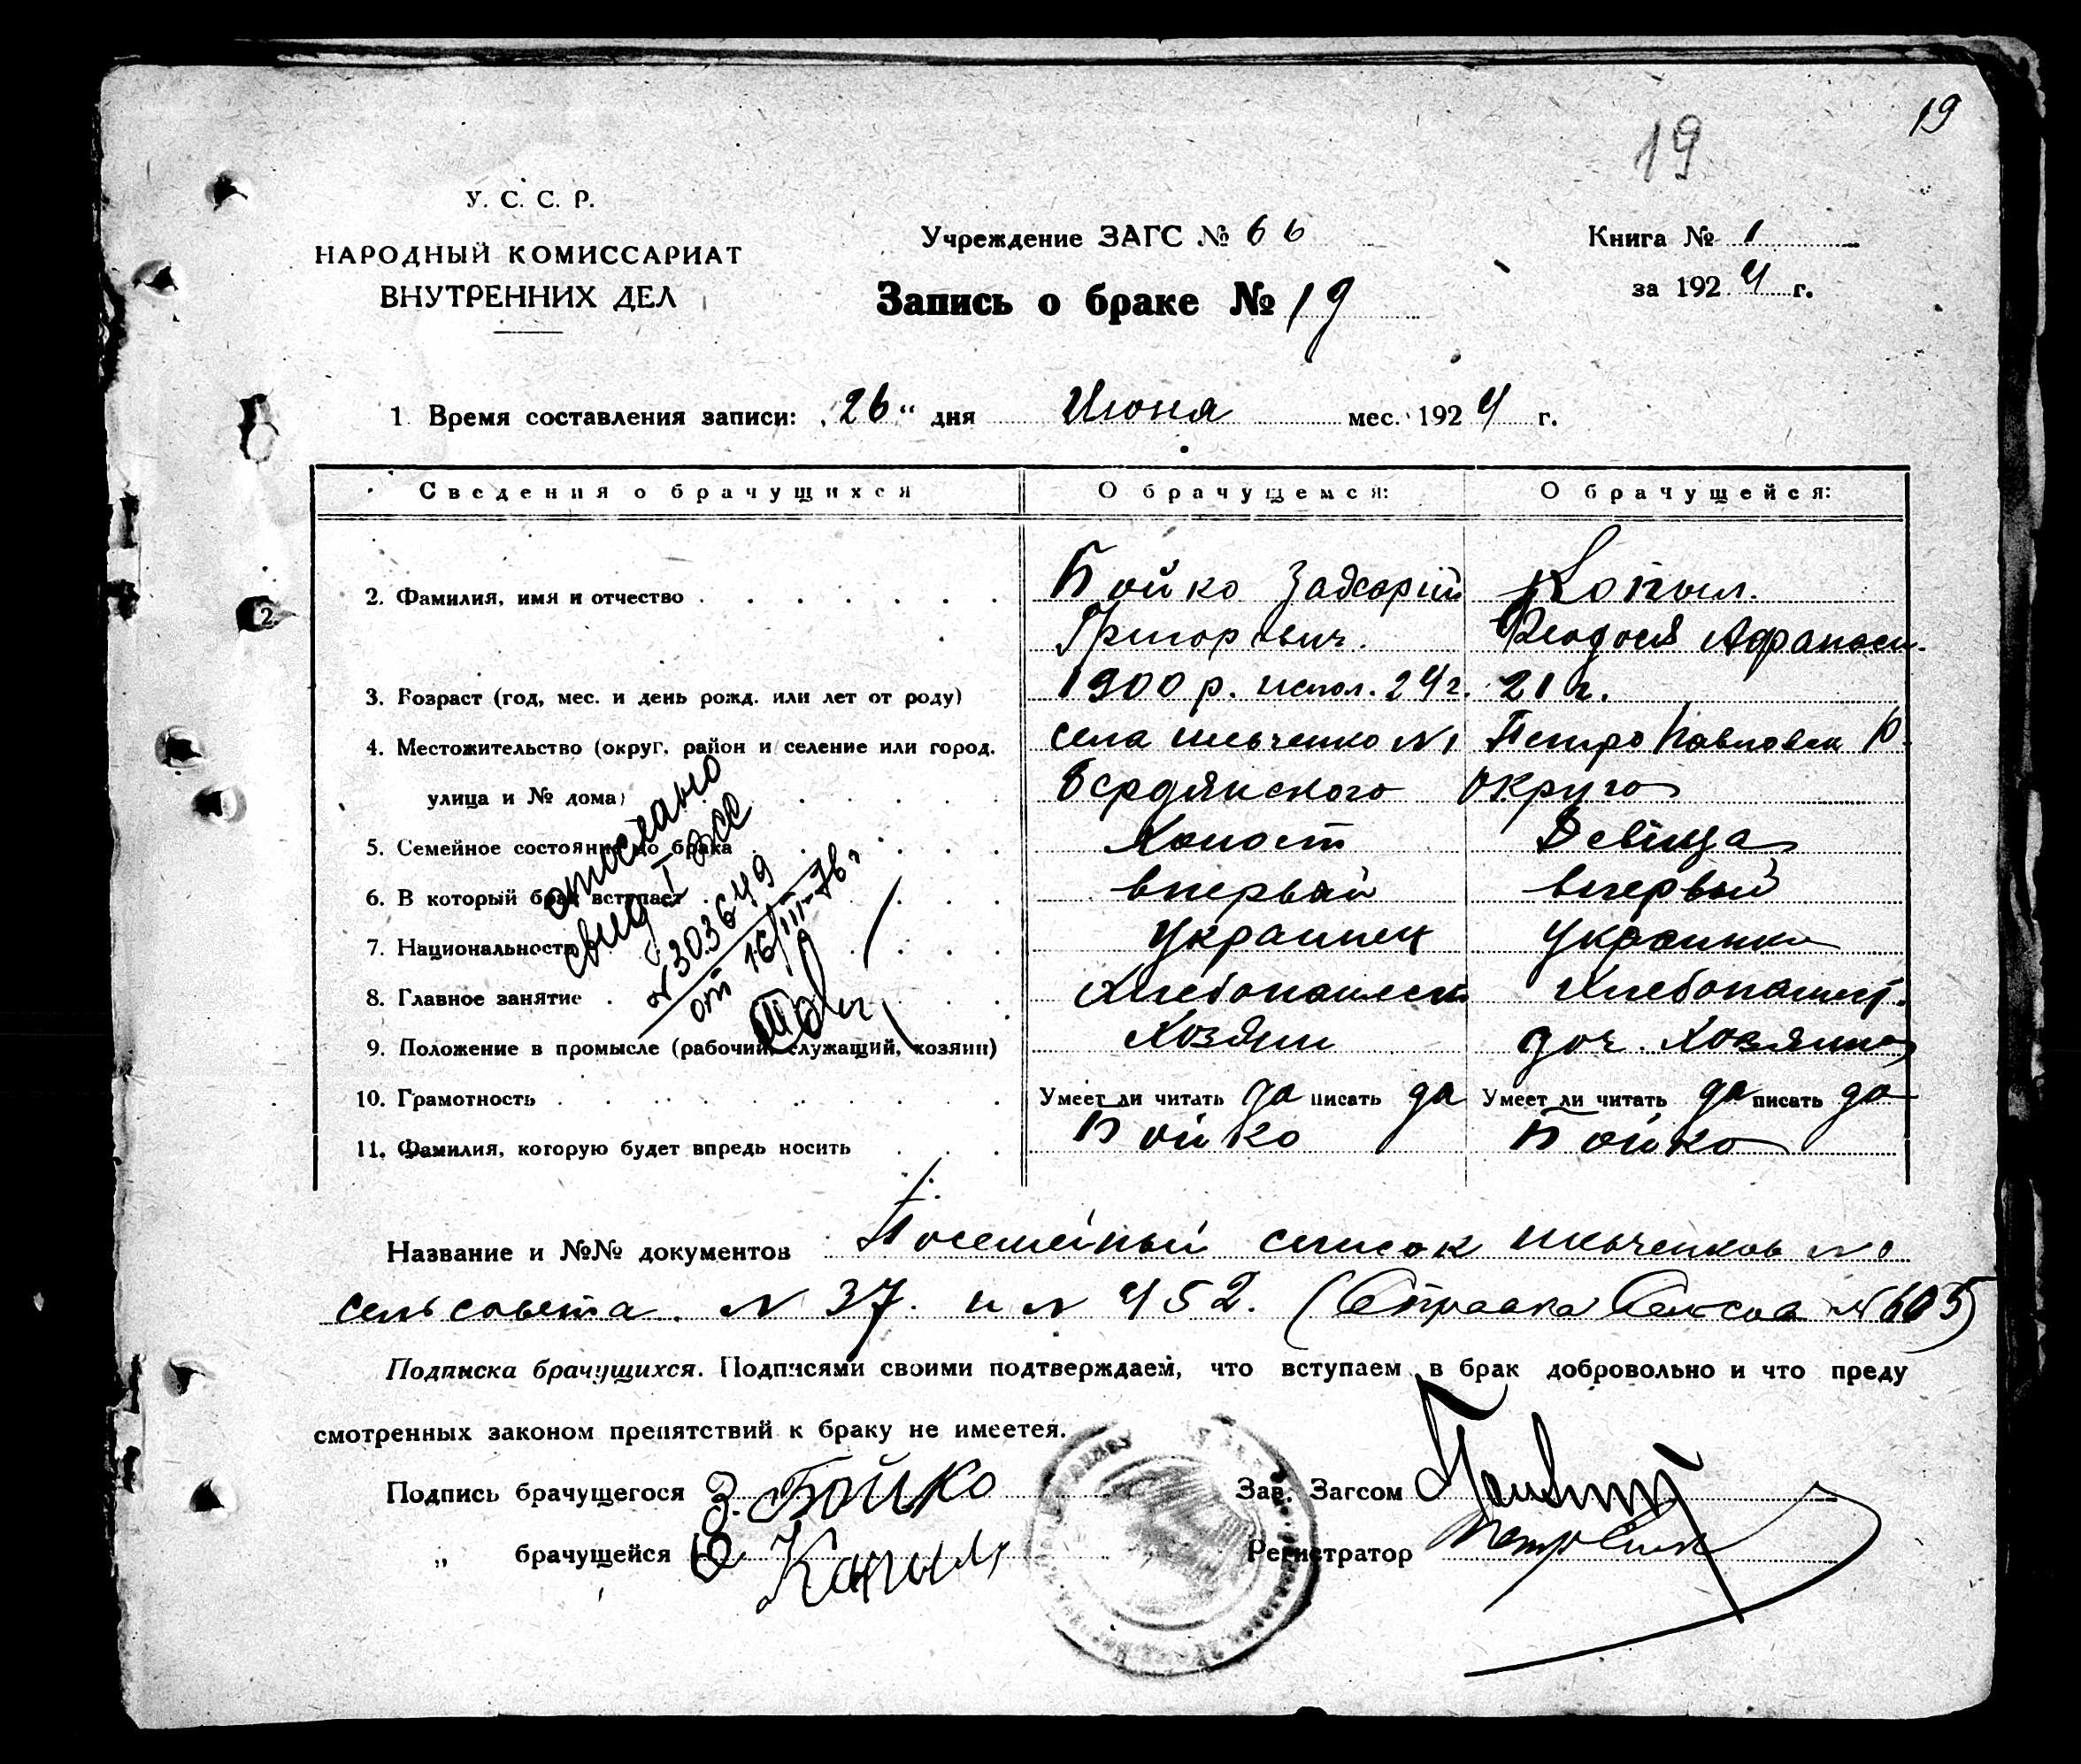 19
19
У. С. С. Р.
НАРОДНЫЙ КОМИССАРИАТ
ВНУТРЕННИХ ДЕЛ
Учреждение ЗАГС № 66
Запись о браке № 19
Книга № 1
за 1924 г.
1 Время составления записи: „26“ дня Июня мес. 1924 г.
Сведения о брачущихся О брачущемся: О брачущейся:
2. Фамилия, имя и отчество Бойко Захарий Копыл.
Григорьевич. Феодосия Афанаси.
3. Возраст (год, мес. и день рожд. или лет от роду) 1900 р. испол. 24 г. 21 г.
4. Местожительство (округ, район и селение или город, села Шевченко №1 Петро Павловск Р.
улица и № дома) Бердянского округа
5. Семейное состояние до брака Холост Девица
6. В который брак вступает впервый впервый
7. Национальность Украинец Украинка
8. Главное занятие Хлебопашест. Хлебопашест.
9. Положение в промысле (рабочий, служащий, хозяин) Хозяин доч. Хозяина
10. Грамотность Умеет ли читать да писать да Умеет ли читать да писать да
11. Фамилия, которую будет впредь носить Бойко Бойко
отослано
свид I
№ 3036449
от 16/III-76 г
Название и №№ документов Посемейный список Шевченков №1
сельсовета. № 37. и № 452. (Справка № 605)
Подписка брачущихся. Подписями своими подтверждаем, что вступаем в брак добровольно и что преду
смотренных законом препятствий к браку не имеется.
Подпись брачущегося З. Бойко Зав. Загсом
„ брачущейся Ф Копыл Регистратор